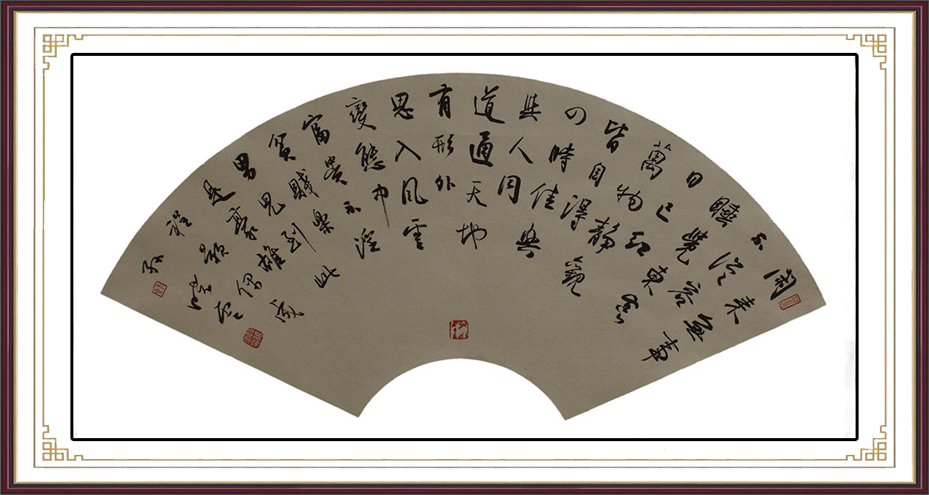 閒来無事
不從容
睡覺東窗
日已紅
萬物靜觀
皆自得
四時佳興
與人同
道通天地
有形外
思入風雲
變態中
富貴不淫
貧賤樂
男兒到此
是豪雄
程顥偶成